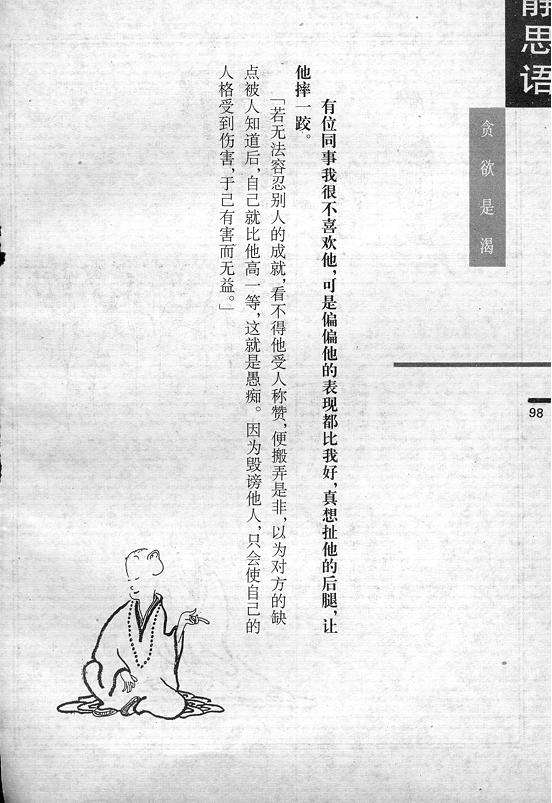 静思语
贪欲是渴
98
有位同事我很不喜欢他，可是偏偏他的表现都比我好，真想扯他的后腿，让
他摔一跤。
「若无法容忍别人的成就，看不得他受人称赞，便搬弄是非，以为对方的缺
点被人知道后，自己就比他高一等，这就是愚痴。因为毁谤他人，只会使自己的
人格受到伤害，于己有害而无益。」